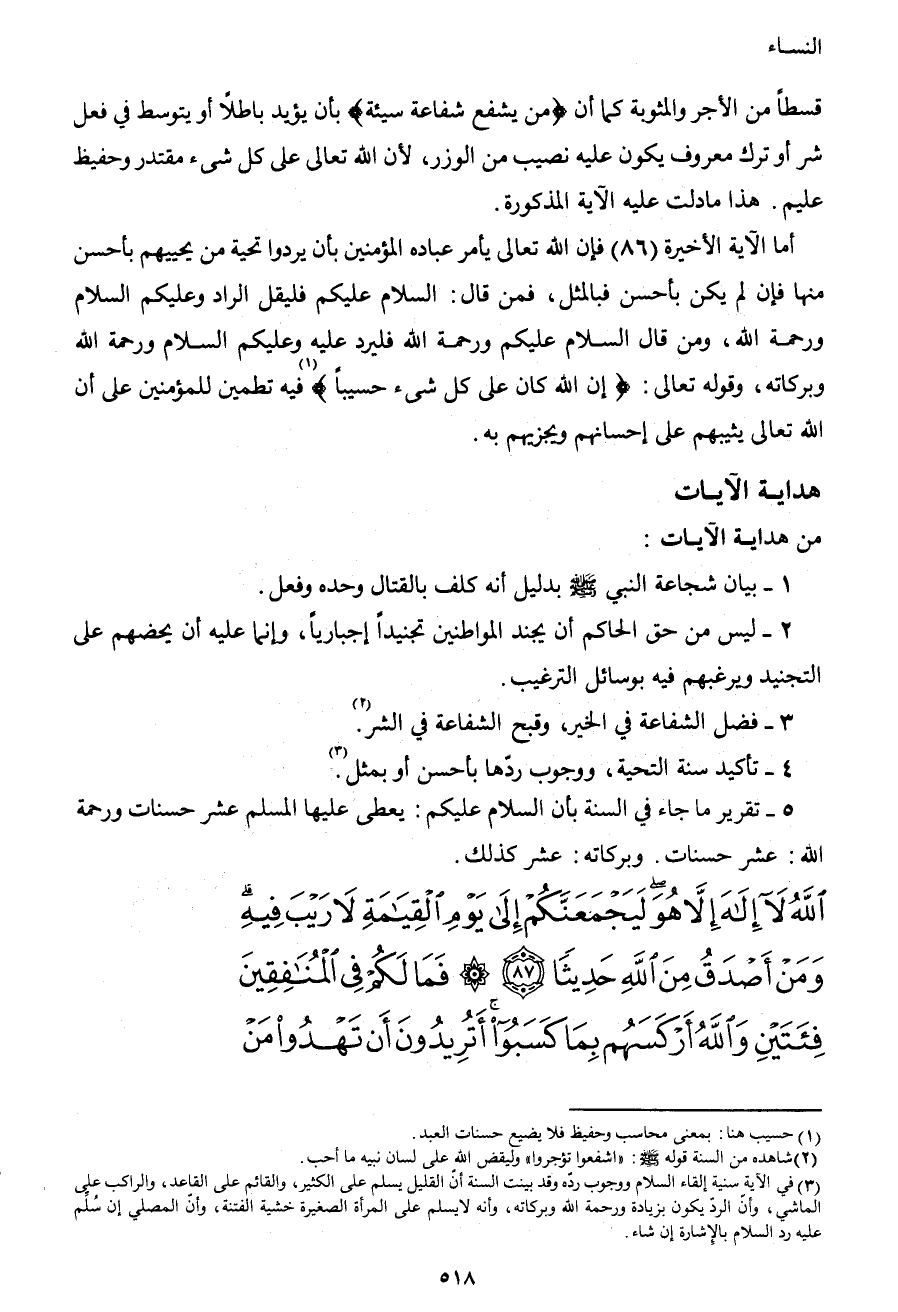 النساء
قسطاً من الأجر والمثوبة كما أن ﴿من يشفع شفاعة سيئة﴾ بأن يؤيد باطلًا أو يتوسط في فعل
شر أو ترك معروف يكون عليه نصيب من الوزر، لأن الله تعالى على كل شىء مقتدر وحفيظ
عليم. هذا مادلت عليه الآية المذكورة.
أما الآية الأخيرة (٨٦) فإن الله تعالى يأمر عباده المؤمنين بأن يردوا تحية من يحييهم بأحسن
منها فإن لم يكن بأحسن فبالمثل، فمن قال: السلام عليكم فليقل الراد وعليكم السلام
ورحمة الله، ومن قال السلام عليكم ورحمة الله فليرد عليه وعليكم السلام ورحمة الله
وبركاته، وقوله تعالى: ﴿ إن الله كان على كل شىء حسيباً ﴾(١) فيه تطمين للمؤمنين على أن
الله تعالى يثيبهم على إحسانهم ويجزيهم به.
هداية الآيات
من هداية الآيات :
١ ـ بيان شجاعة النبي ﷺ بدليل أنه كلف بالقتال وحده وفعل.
٢ ـ ليس من حق الحاكم أن يجند المواطنين تجنيداً إجبارياً، وإنما عليه أن يحضهم على
التجنيد ويرغبهم فيه بوسائل الترغيب.
٣ ـ فضل الشفاعة في الخير، وقبح الشفاعة في الشر.(٢)
٤ ـ تأكيد سنة التحية، ووجوب ردّها بأحسن أو بمثل.(٣)
٥ ـ تقرير ما جاء في السنة بأن السلام عليكم: يعطى عليها المسلم عشر حسنات ورحمة
الله: عشر حسنات. وبركاته: عشر كذلك.
ٱللَّهُ لَآ إِلَٰهَ إِلَّا هُوَۖ لَيَجْمَعَنَّكُمْ إِلَىٰ يَوْمِ ٱلْقِيَٰمَةِ لَا رَيْبَ فِيهِۗ
وَمَنْ أَصْدَقُ مِنَ ٱللَّهِ حَدِيثًا ٨٧ ۞ فَمَا لَكُمْ فِى ٱلْمُنَٰفِقِينَ
فِئَتَيْنِ وَٱللَّهُ أَرْكَسَهُم بِمَا كَسَبُوٓا۟ۚ أَتُرِيدُونَ أَن تَهْدُوا۟ مَنْ
(١) حسيب هنا: بمعنى محاسب وحفيظ فلا يضيع حسنات العبد.
(٢) شاهده من السنة قوله ﷺ: «اشفعوا تؤجروا» وليقض الله على لسان نبيه ما أحب.
(٣) في الآية سنية إلقاء السلام ووجوب ردّه وقد بينت السنة أنّ القليل يسلم على الكثير، والقائم على القاعد، والراكب على
الماشي، وأنّ الردّ يكون بزيادة ورحمة الله وبركاته، وأنه لايسلم على المرأة الصغيرة خشية الفتنة، وأنّ المصلي إن سُلّم
عليه رد السلام بالإشارة إن شاء.
٥١٨